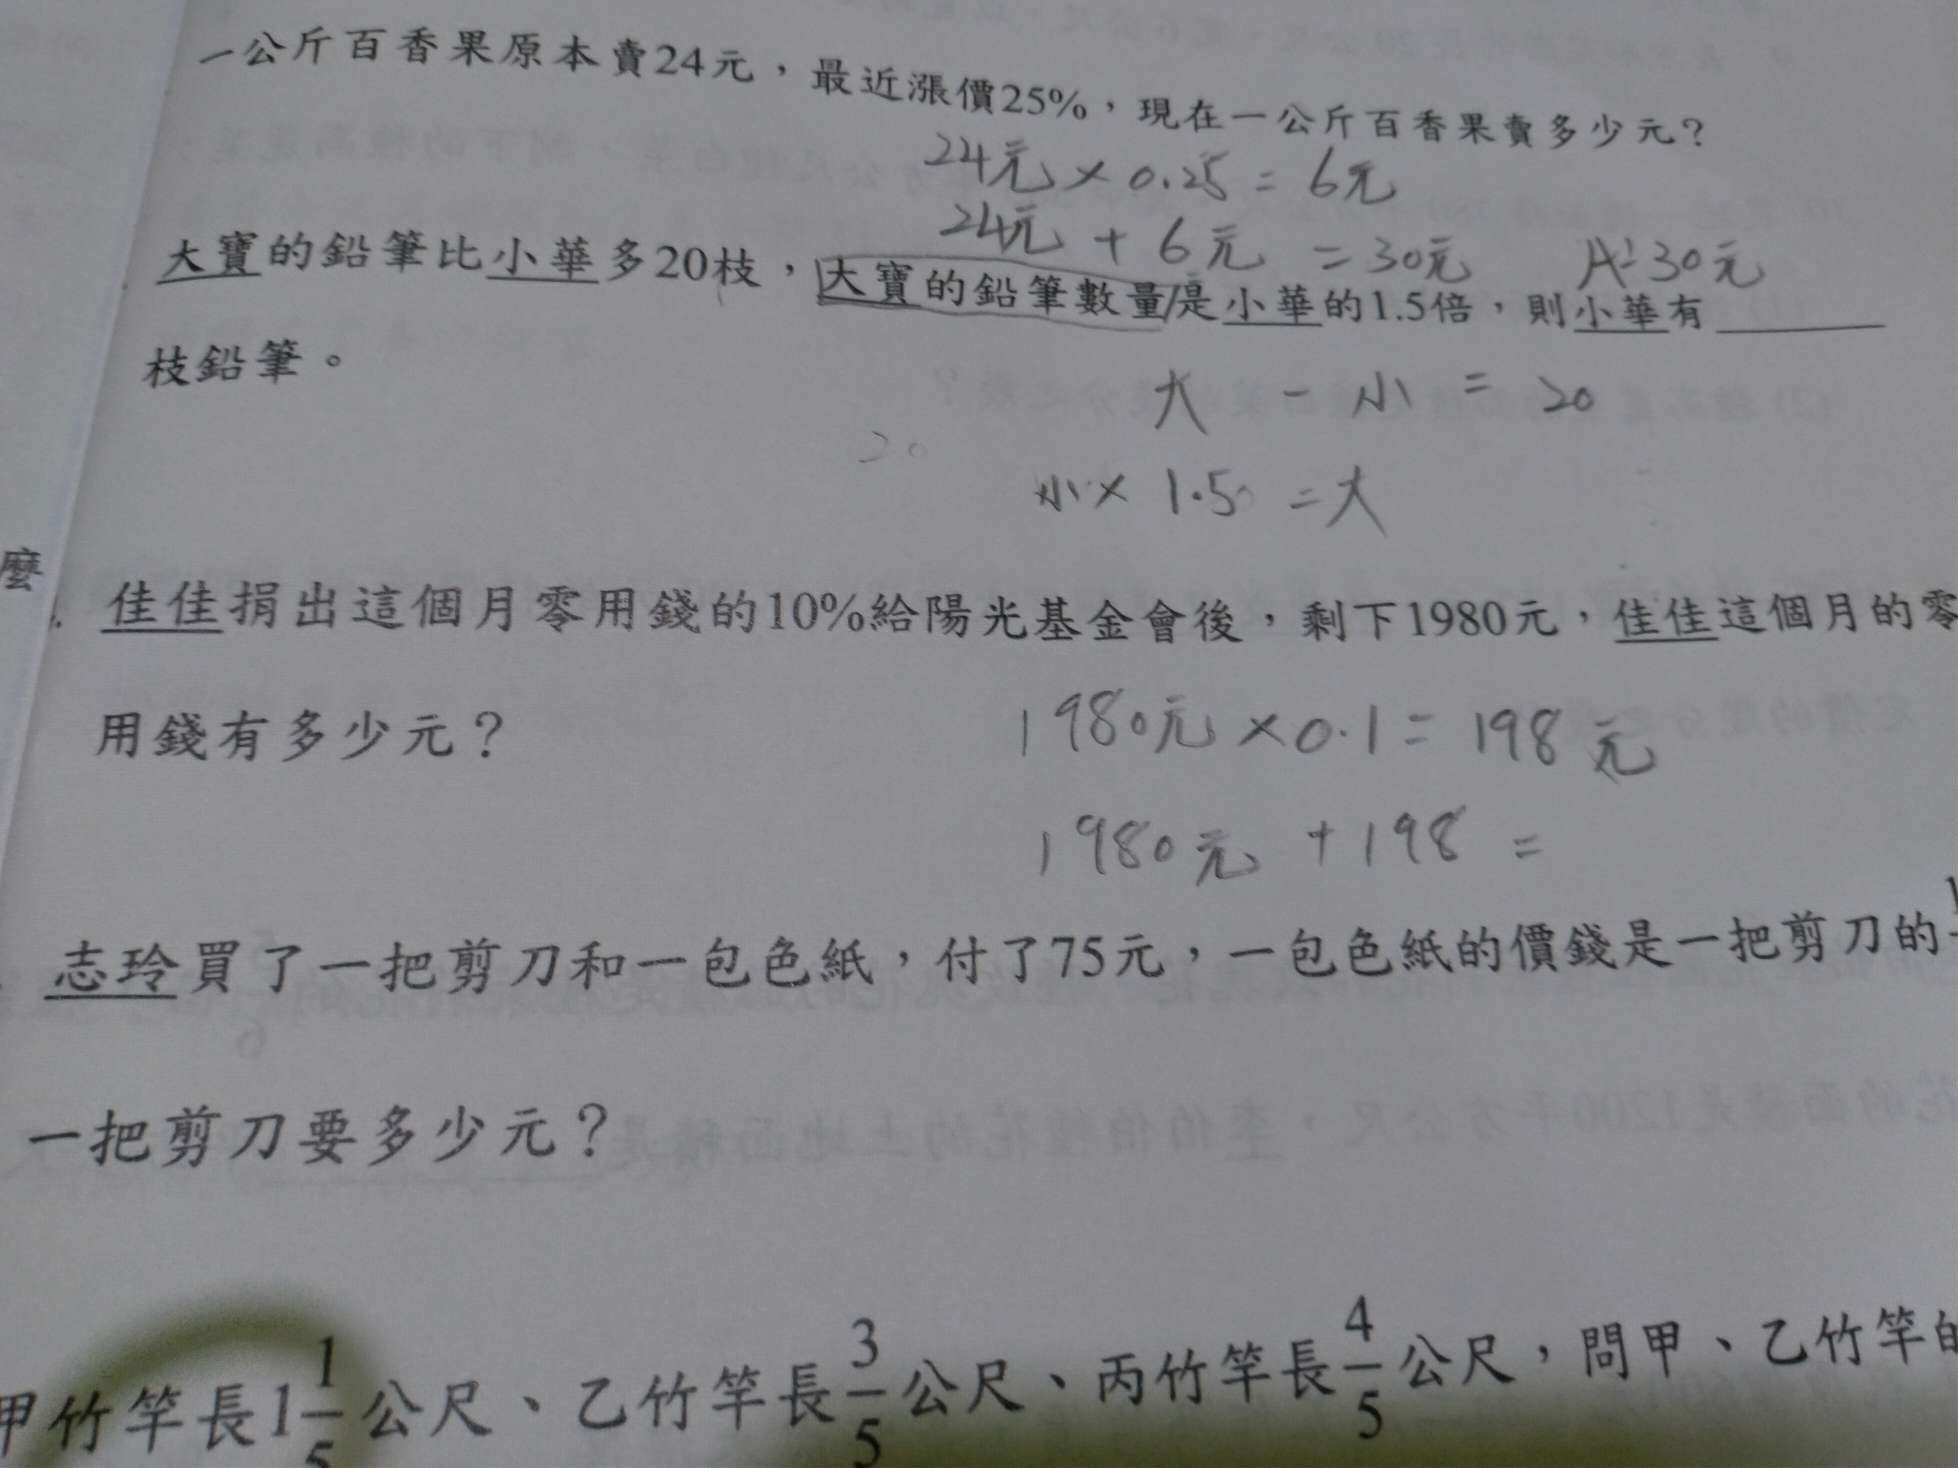 一公斤百香果原本賣24元，最近漲價25%，現在一公斤百香果賣多少元？
24元×0.25=6元
24元+6元=30元 A:30元
大寶的鉛筆比小華多20枝，大寶的鉛筆數量/是小華的1.5倍，則小華有______
枝鉛筆。
大-小=20
20
小×1.5=大
麼
佳佳捐出這個月零用錢的10%給陽光基金會後，剩下1980元，佳佳這個月的零
用錢有多少元？
1980元×0.1=198元
1980元+198=
志玲買了一把剪刀和一包色紙，付了75元，一包色紙的價錢是一把剪刀的
一把剪刀要多少元？
甲竹竿長1 1/5公尺、乙竹竿長3/5公尺、丙竹竿長4/5公尺，問甲、乙竹竿的